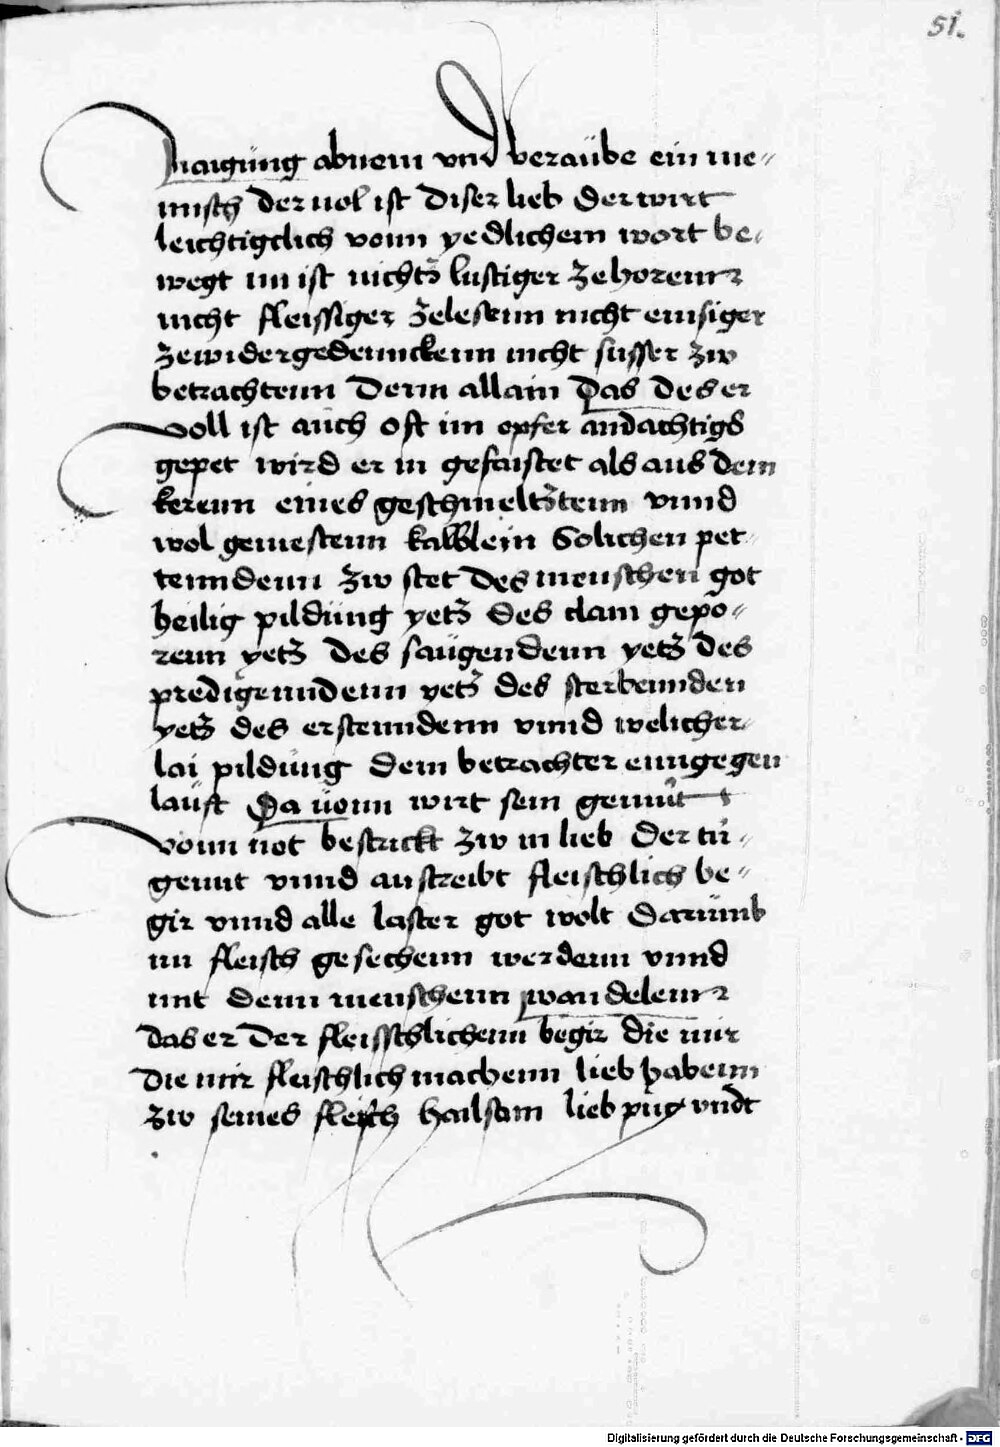 51.
naigung abnem vnd beraube ein me„
nnsch der uol ist diser lieb der wirt
leichtigclich vonn yedlichem wort be„
wegt im ist nichtz lustiger ze horenn
nicht fleissiger zelesenn nicht emsiger
zewidergedennckenn nicht susser zw
betrachtenn denn allain das des er
voll ist auch oft im opfer andachtigs
gepet wird er in gefaistet als aus dem
kerenn eines geschmeltztenn vnnd
wol gemestenn kalblein Solichen pet„
tenndenn zw stet des menschen got
heilig pildung yetz des clain gepo„
renn yetz des saugendenn yetz des
predigenndenn yetz des sterbennden
yetz des erstenndenn vnnd welicher„
lai pildung dem betrachter enngegen
lauft Da uonn wirt sein gemut
vonn not bestrickt zw in lieb der tu„
gennt vnnd austreibt fleischlich be„
gir vnnd alle laster got wolt darumb
im fleisch gesechenn werdenn vnnd
mit denn menschenn wandelenn
das er der fleisschlichenn begir die mir
die mir fleischlich machenn lieb habenn
zw seines fleisch hailsam lieb pug vndt
Digitalisierung gefördert durch die Deutsche Forschungsgemeinschaft - DFG